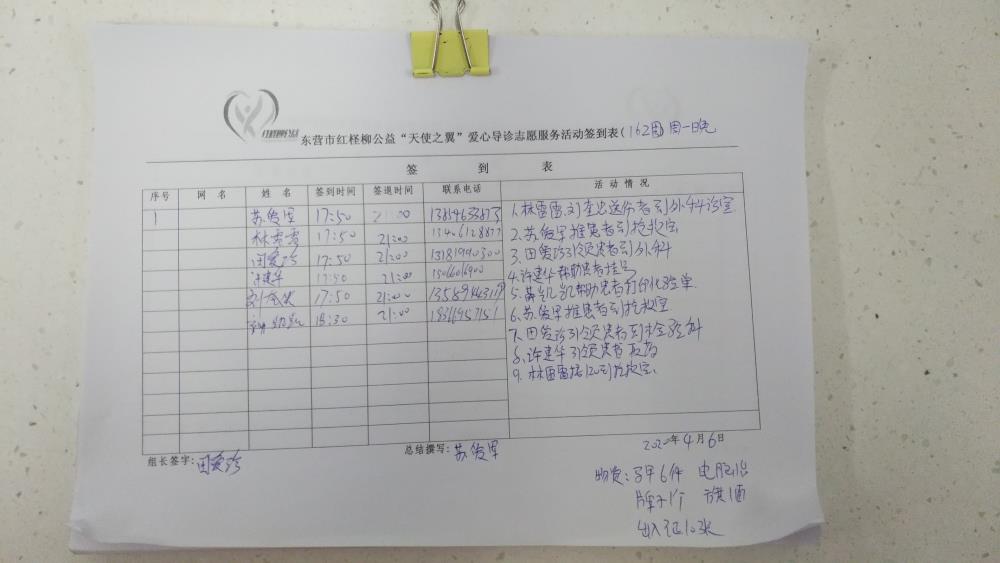 东营市红柽柳公益“天使之翼”爱心导诊志愿服务活动签到表(162周)周一晚
签 到 表
序号 网 名 姓 名 签到时间 签退时间 联系电话 活 动 情 况
1 苏俊军 17:50 21:00
林雷雷 17:50 21:00
田爱珍 17:50 21:00
许建华 17:50 21:00
17:50 21:00
18:30 21:00
1.林雷雷.刘 送伤者到外科诊室
2.苏俊军推患者到抢救室
3.田爱珍引领患者到外科
4.许建华帮助患者挂号
5. 帮助患者打印化验单
6.苏俊军推患者到抢救室
7.田爱珍引领患者到检验科
8.许建华引领患者取药
9.林雷雷接120到抢救室.
2020年4月6日
组长签字:田爱珍
总结撰写:苏俊军
物资:马甲6件 电脑1台
牌子1个 旗1面
出入证10张